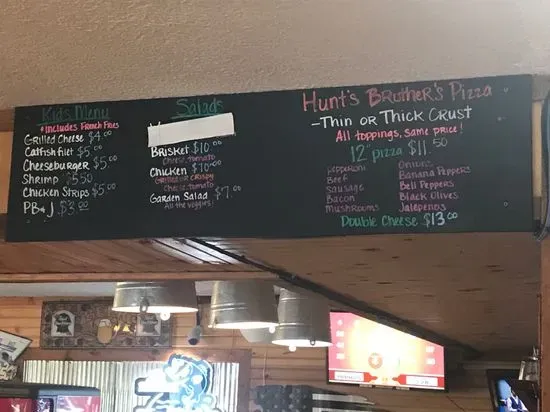 Kids Menu
*Includes French Fries
Grilled Cheese $4.00
Catfish filet $5.00
Cheeseburger $5.00
Shrimp $5.50
Chicken Strips $5.00
PB&J $3.00
Salads
Brisket $10.00
Cheese, tomato
Chicken $10.00
Grilled or Crispy
Cheese, tomato
Garden Salad $7.00
All the veggies!
Hunt's Bruther's Pizza
-Thin or Thick Crust
All toppings, same price!
12" pizza $11.50
Pepperoni
Beef
Sausage
Bacon
Mushrooms
Onions
Banana Peppers
Bell Peppers
Black Olives
Jalepenos
Double Cheese $13.00